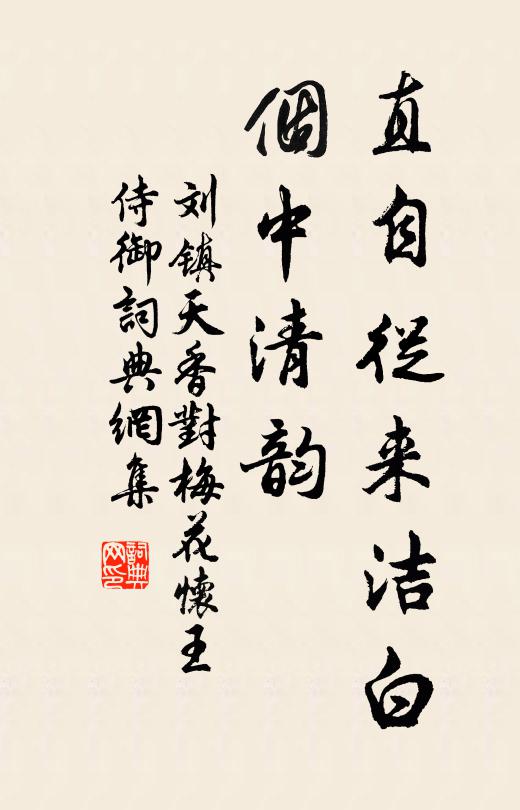 直自從来洁白
個中清韵
刘镇天香對梅花懷王
侍御詞典網集
詞典
网印